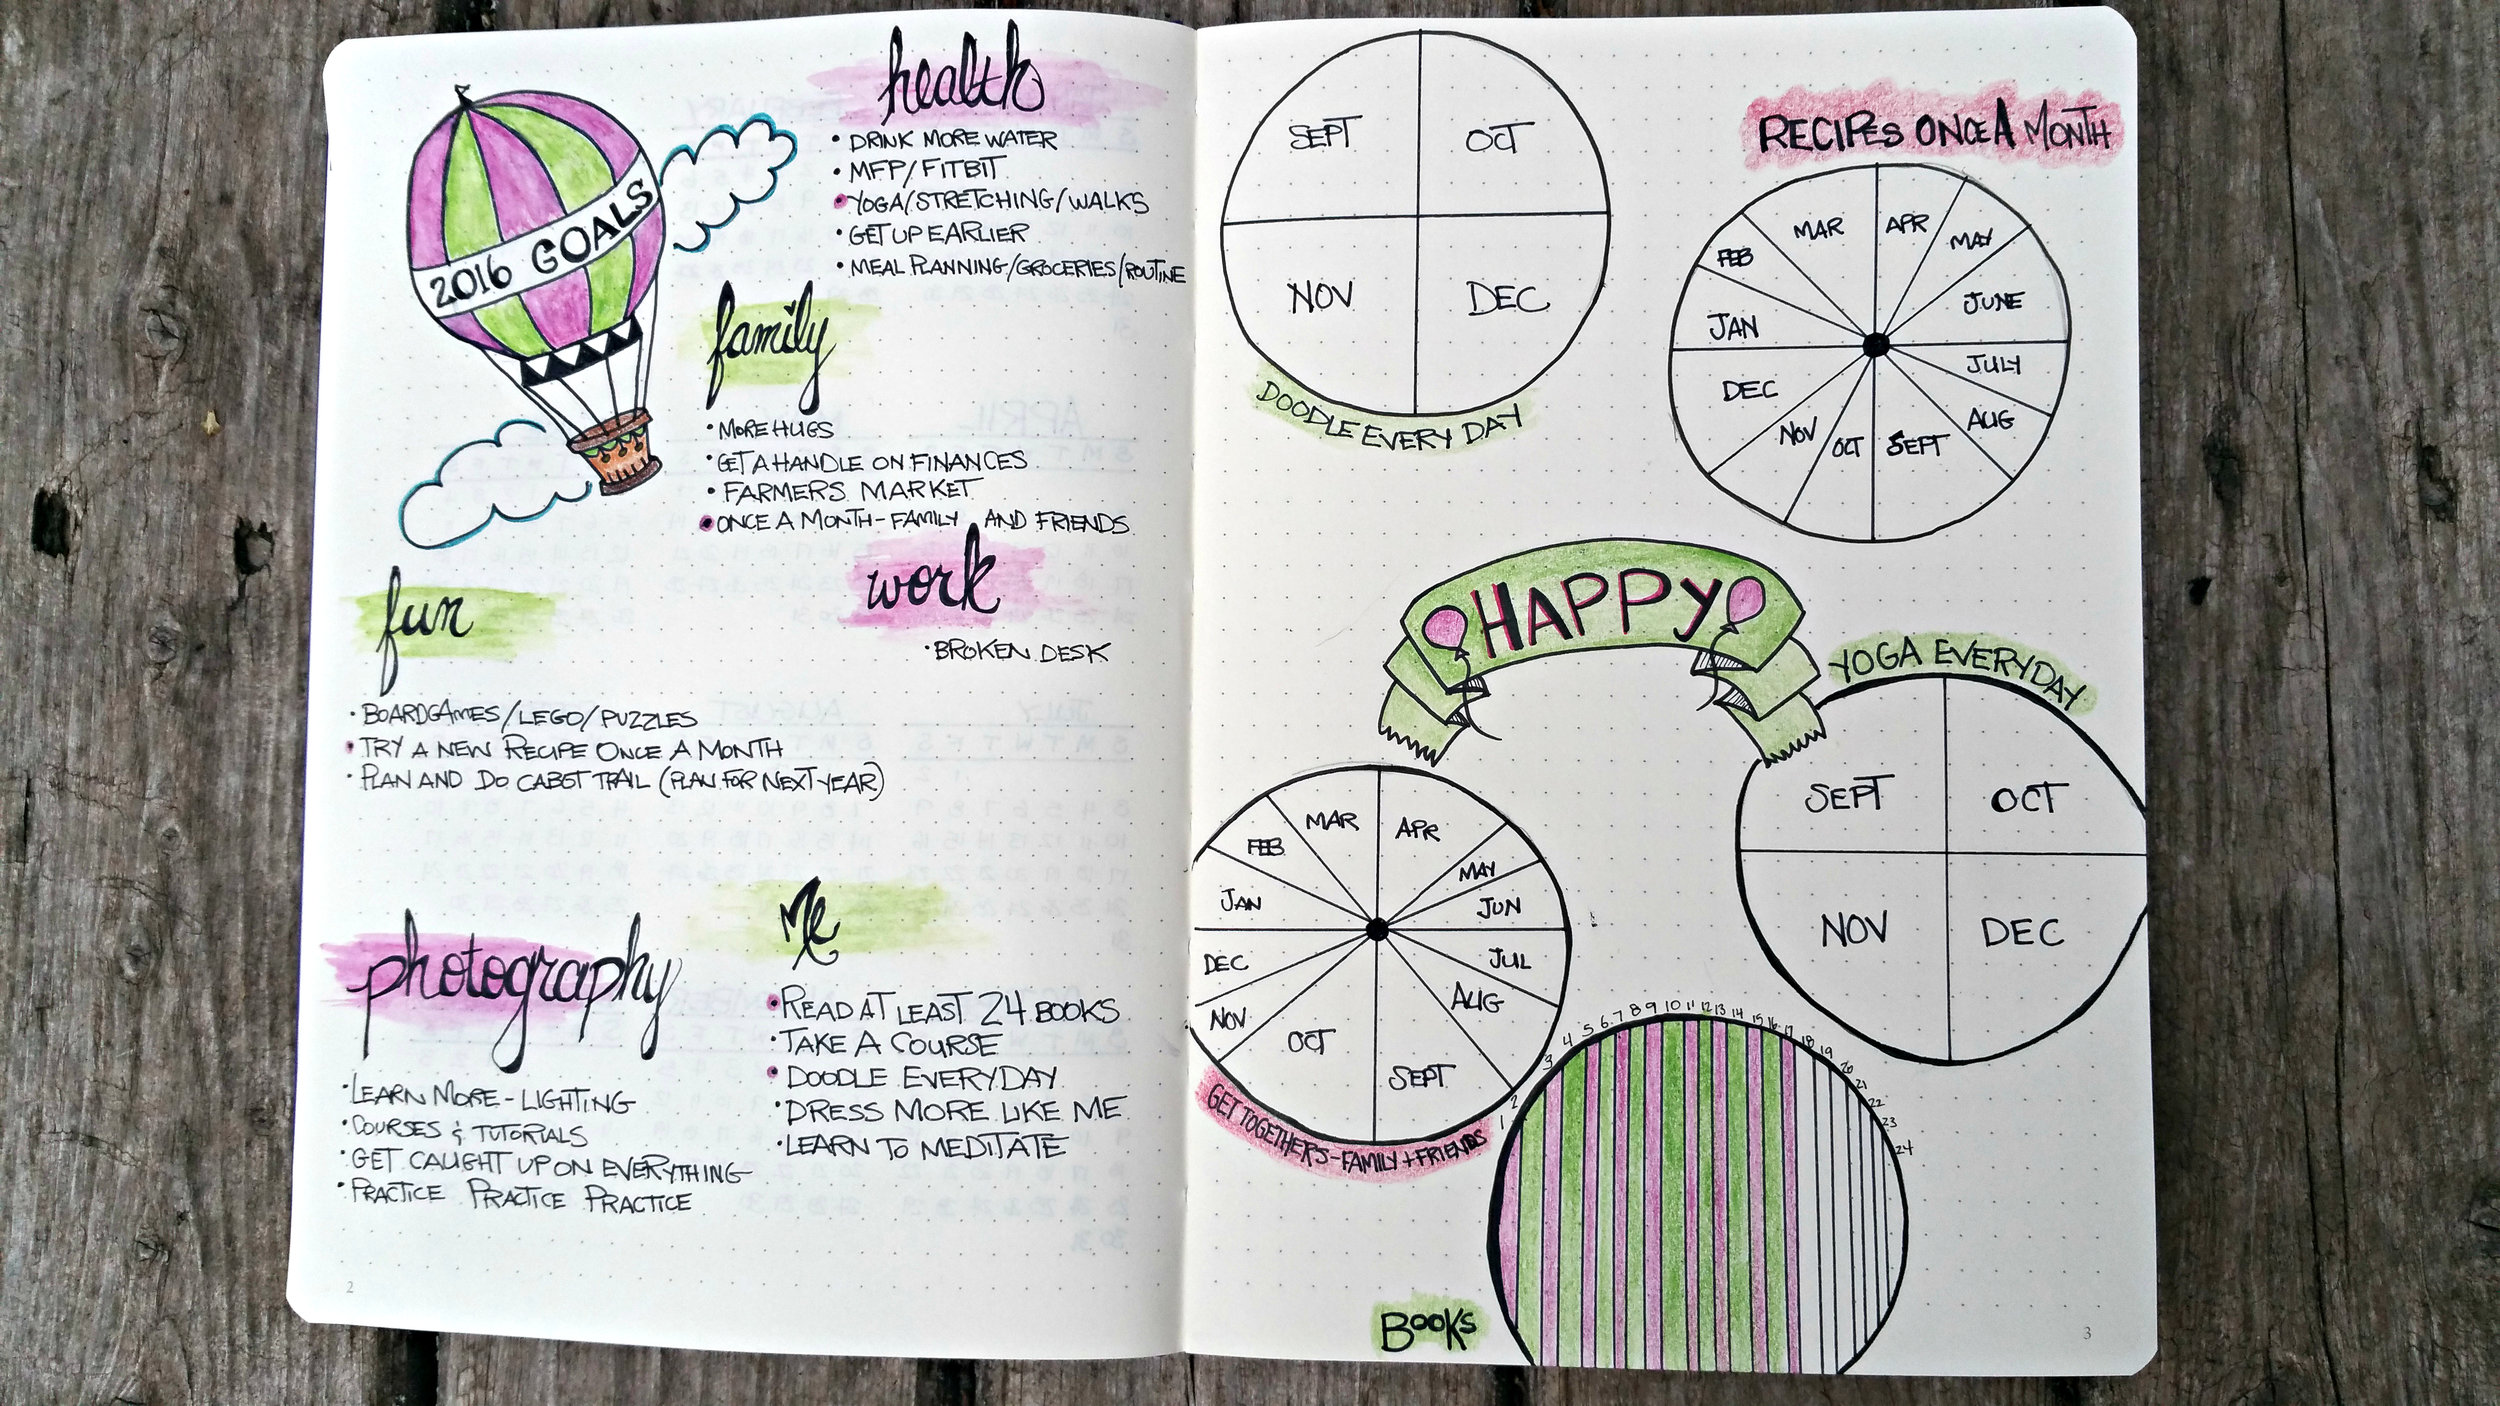 2016 GOALS
health
• DRINK MORE WATER
• MFP/FITBIT
• YOGA/STRETCHING/WALKS
• GET UP EARLIER
• MEAL PLANNING/GROCERIES/ROUTINE
family
• MORE HUGS
• GET A HANDLE ON FINANCES
• FARMERS MARKET
• ONCE A MONTH - FAMILY AND FRIENDS
work
• BROKEN DESK
fun
• BOARDGAMES/LEGO/PUZZLES
• TRY A NEW RECIPE ONCE A MONTH
• PLAN AND DO CABOT TRAIL (PLAN FOR NEXT YEAR)
photography
• LEARN MORE - LIGHTING
• COURSES & TUTORIALS
• GET CAUGHT UP ON EVERYTHING
• PRACTICE PRACTICE PRACTICE
Me
• READ AT LEAST 24 BOOKS
• TAKE A COURSE
• DOODLE EVERYDAY
• DRESS MORE LIKE ME
• LEARN TO MEDITATE
2
SEPT OCT
NOV DEC
DOODLE EVERY DAY
RECIPES ONCE A MONTH
JAN
FEB
MAR
APR
MAY
JUNE
JULY
AUG
SEPT
OCT
NOV
DEC
HAPPY
YOGA EVERYDAY
SEPT OCT
NOV DEC
JAN
FEB
MAR
APR
MAY
JUN
JUL
AUG
SEPT
OCT
NOV
DEC
GET TOGETHERS - FAMILY + FRIENDS
1 2 3 4 5 6 7 8 9 10 11 12 13 14 15 16 17 18 19 20 21 22 23 24
BOOKS
3